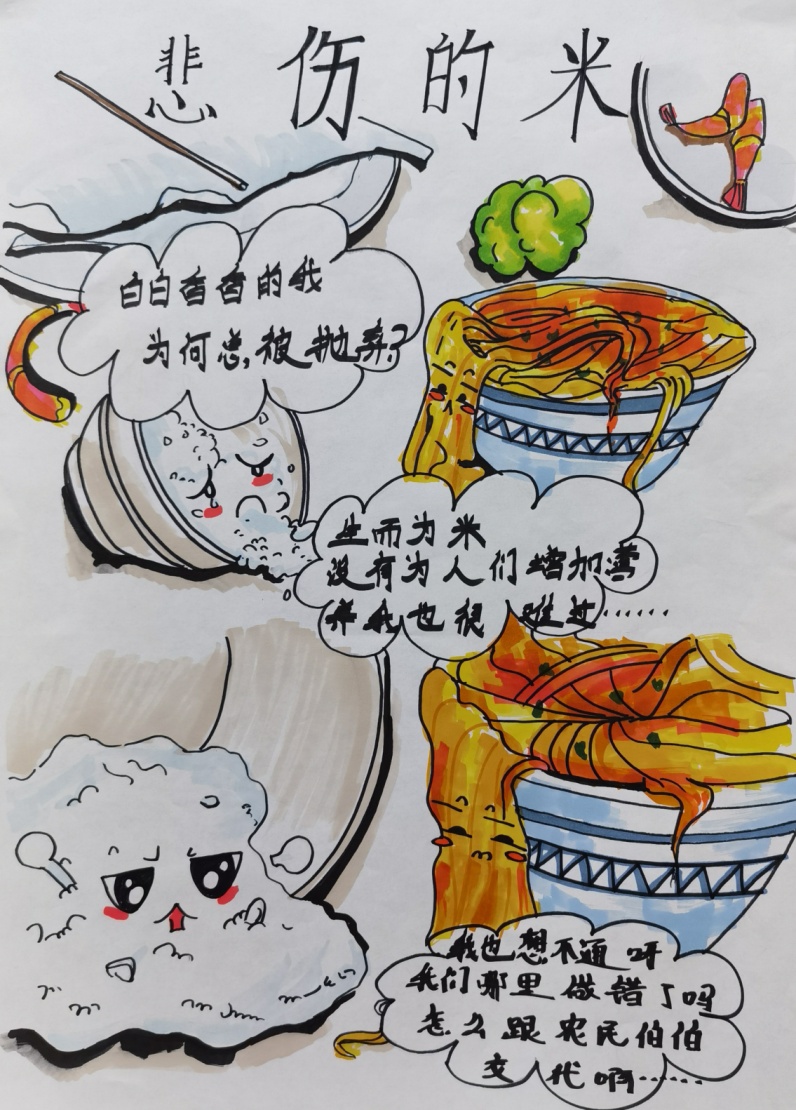 悲伤的米
白白香香的我
为何总,被抛弃?
生而为米
没有为人们增加营
养我也很难过……
我也想不通呀
我们哪里做错了吗
怎么跟农民伯伯
交代啊……